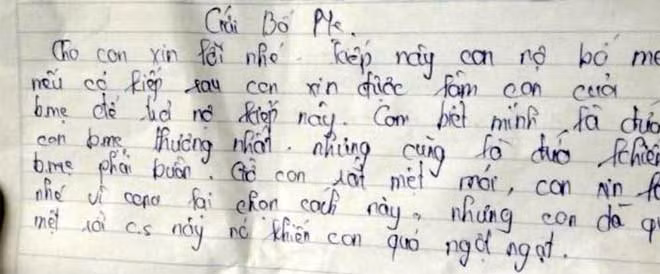 Gửi Bố Mẹ.
Cho con xin lỗi nhé. Kiếp này con nợ bố mẹ
nếu có kiếp sau con xin được làm con của
b.mẹ để trả nợ kiếp này. Con biết mình là đứa
con b.mẹ thương nhất. nhưng cũng là đứa khiến
b.mẹ phải buồn. Giờ con rất mệt mỏi, con xin
nhé vì con lại chọn cách này, nhưng con đã
mệt rồi c.s này nó khiến con quá ngột ngạt.